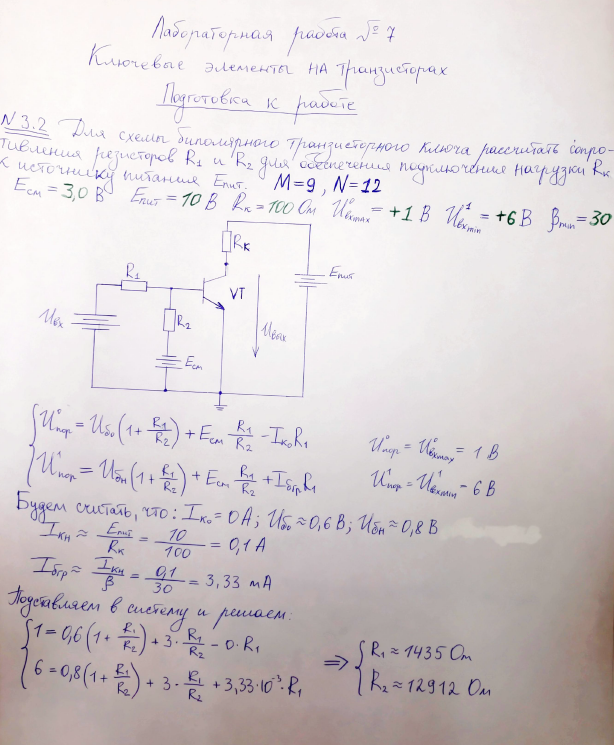 Лабораторная работа №7
Ключевые элементы на транзисторах
Подготовка к работе
N3.2 Для схемы биполярного транзисторного ключа рассчитать сопро-
тивления резисторов R₁ и R₂ для обеспечения подключения нагрузки Rк
к источнику питания Eпит. M=9, N=12
Eсм = 3,0 В Eпит = 10 В Rк = 100 Ом U⁰вхmax = +1 В U¹вхmin = +6 В βmin = 30
Rк
R₁
Eпит
VT
Uвх
R₂
Uвых
Eсм
U⁰пор = Uбо(1 + R₁/R₂) + Eсм R₁/R₂ - Iко R₁
U⁰пор = U⁰вхmax = 1 В
U¹пор = Uбн(1 + R₁/R₂) + Eсм R₁/R₂ + Iбгр R₁
U¹пор = U¹вхmin - 6 В
Будем считать, что: Iко = 0 А; Uбо ≈ 0,6 В; Uбн ≈ 0,8 В
Iкн ≈ Eпит/Rк = 10/100 = 0,1 А
Iбгр ≈ Iкн/β = 0,1/30 = 3,33 мА
Подставляем в систему и решаем:
1 = 0,6(1 + R₁/R₂) + 3·R₁/R₂ - 0·R₁
6 = 0,8(1 + R₁/R₂) + 3·R₁/R₂ + 3,33·10⁻³·R₁
⇒ R₁ ≈ 1435 Ом
R₂ ≈ 12912 Ом